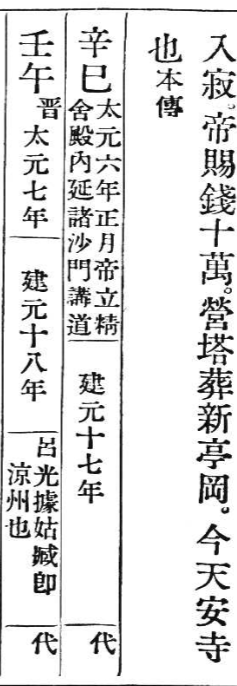 入寂。帝賜錢十萬。營塔葬新亭岡。今天安寺
也本傳
辛巳太元六年正月帝立精
舍殿內延諸沙門講道
建元十七年
代
壬午
晋太元七年
建元十八年
呂光據姑臧即
涼州也
代